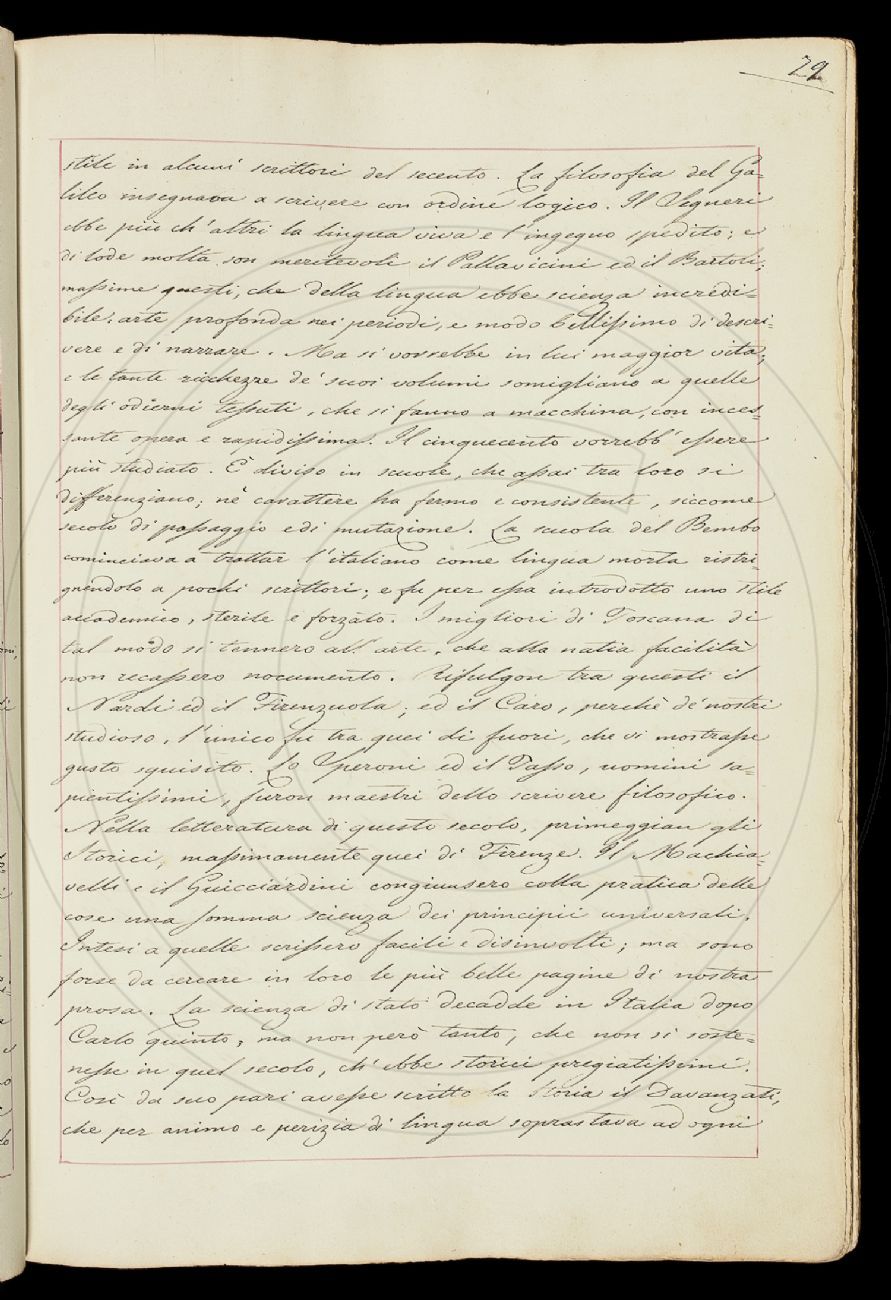 29
stile in alcuni scrittori del secento. La filosofia del Ga=
lileo insegnava a scrivere con ordine logico. Il Segneri
ebbe più ch'altri la lingua viva e l'ingegno spedito; e
di lode molta son meritevoli il Pallavicini ed il Bartoli;
massime questi, che della lingua ebbe scienza incredi=
bile, arte profonda nei periodi, e modo bellissimo di descri=
vere e di narrare. Ma si vorrebbe in lui maggior vita;
e le tante ricchezze de' suoi volumi somigliano a quelle
degli odierni tessuti, che si fanno a macchina, con inces=
sante opera e rapidissima. Il cinquecento vorrebb' essere
più studiato. È diviso in scuole, che assai tra loro si
differenziano; nè carattere ha fermo e consistente, siccome
secolo di passaggio e di mutazione. La scuola del Bembo
cominciava a trattar l'italiano come lingua morta ristri=
gnendolo a pochi scrittori; e fu per essa introdotto uno stile
accademico, sterile e forzato. I migliori di Toscana di
tal modo si tennero all'arte, che alla natia facilità
non recassero nocumento. Rifulgon tra questi il
Nardi ed il Firenzuola; ed il Caro, perchè de' nostri
studioso, l'unico fu tra quei di fuori, che vi mostrasse
gusto squisito. Lo Speroni ed il Tasso, uomini sa=
pientissimi, furon maestri dello scrivere filosofico.
Nella letteratura di questo secolo, primeggian gli
Storici, massimamente quei di Firenze. Il Machia=
velli e il Guicciardini congiunsero colla pratica delle
cose una somma scienza dei principii universali.
Intesi a quelle scrissero facili e disinvolti; ma sono
forse da cercare in loro le più belle pagine di nostra
prosa. La scienza di stato decadde in Italia dopo
Carlo quinto, ma non però tanto, che non si soste=
nesse in quel secolo, ch' ebbe storici pregiatissimi.
Così da suo pari avesse scritto la Storia il Davanzati,
che per animo e perizia di lingua soprastava ad ogni